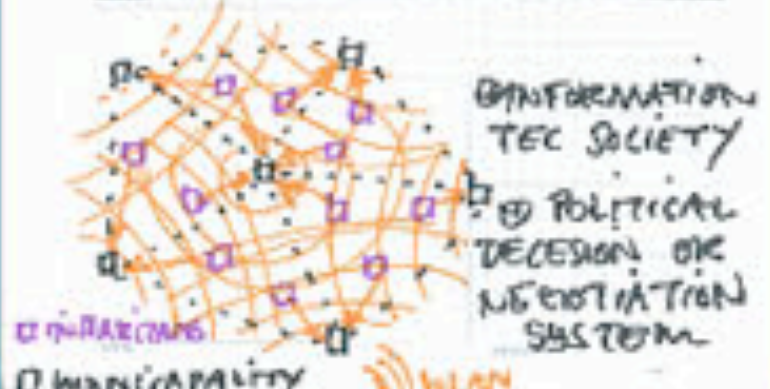 ⊕ INFORMATION
TEC SOCIETY
⊕ POLITICAL
DECESION OR
NEGOTIATION
SYSTEM
MUNICAPALITY
WLAN